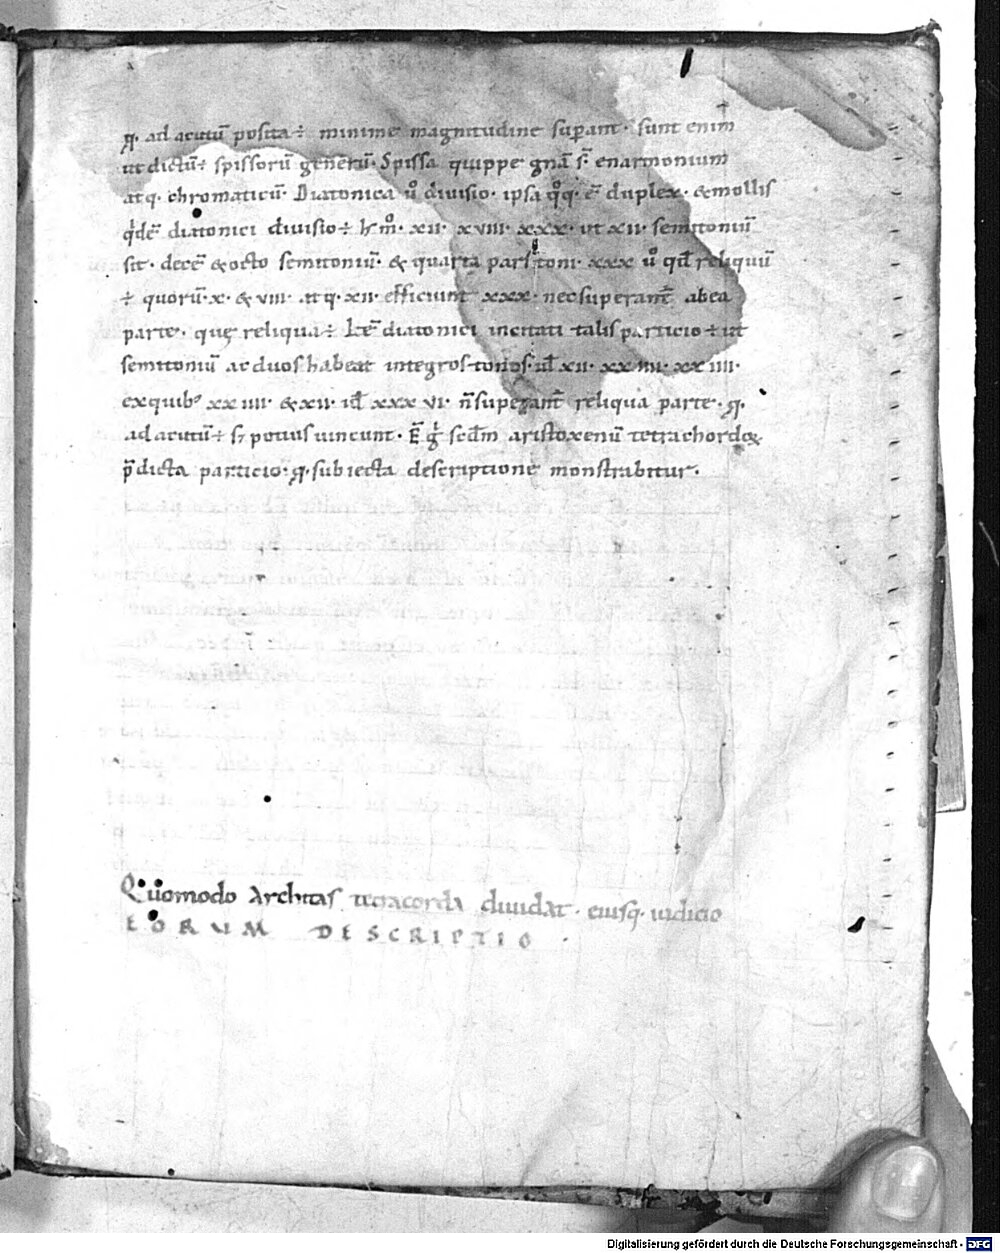 q̨. ad acutū posita ÷ minime magnitudine suꝑant. sunt enim
ut dictū ÷ spissorū generū. Spissa quippe gn̄a s̄t enarmonium
atq. chromaticū. Diatonica ů diuisio. ipsa qͦq. ē duplex. & mollis
qͥdē diatonici diuisio ÷ hͦ m̊. xii. xviii. xxx. ut xii. semitoniū
sit. decē & octo semitoniū. & quarta pars toni. xxx ů qđ reliquū
÷ quorū. x. & viii. atq. xii. efficiunt xxx. nec superant̄ ab ea
parte. quę reliqua ÷ Itē diatonici incitati talis particio ÷ ut
semitoniū ac duos habeat integros tonos. id̄ xii. xxiiii. xxiiii.
ex quibꝰ xxiiii. & xii. id̄ xxxvi. n̄ superant̄ reliqua parte. q̨.
ad acutū ÷ s; potius uincunt. Ē gͥ scđm aristoxenū tetrachordoꝝ
p̄dicta particio. q̨. subiecta descriptione monstrabitur.
Quomodo Architas tetracorda diuidat. eiusq. iudicio
EORUM DESCRIPTIO.
Digitalisierung gefördert durch die Deutsche Forschungsgemeinschaft - DFG